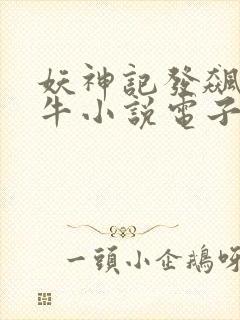 妖神記發飆
牛小說電子
一頭小企鵝呀